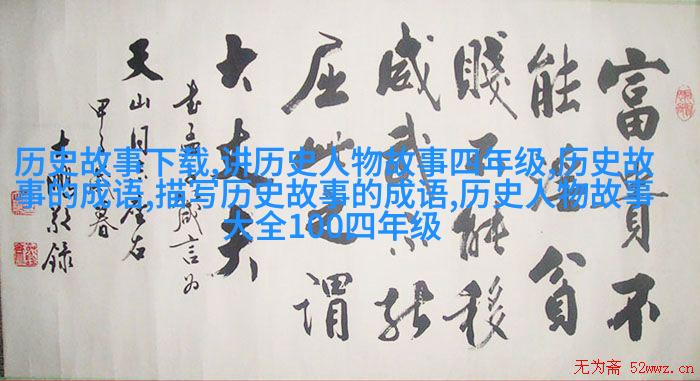 富貴不
能淫貧
賤不能移
威武不能
屈此之謂
大丈夫
天山同志座右
历史故事下载,讲历史人物故事四年级,历史故
事的成语,描写历史故事的成语,历史人物故事
大全100四年级
无为斋 52wwz.cn